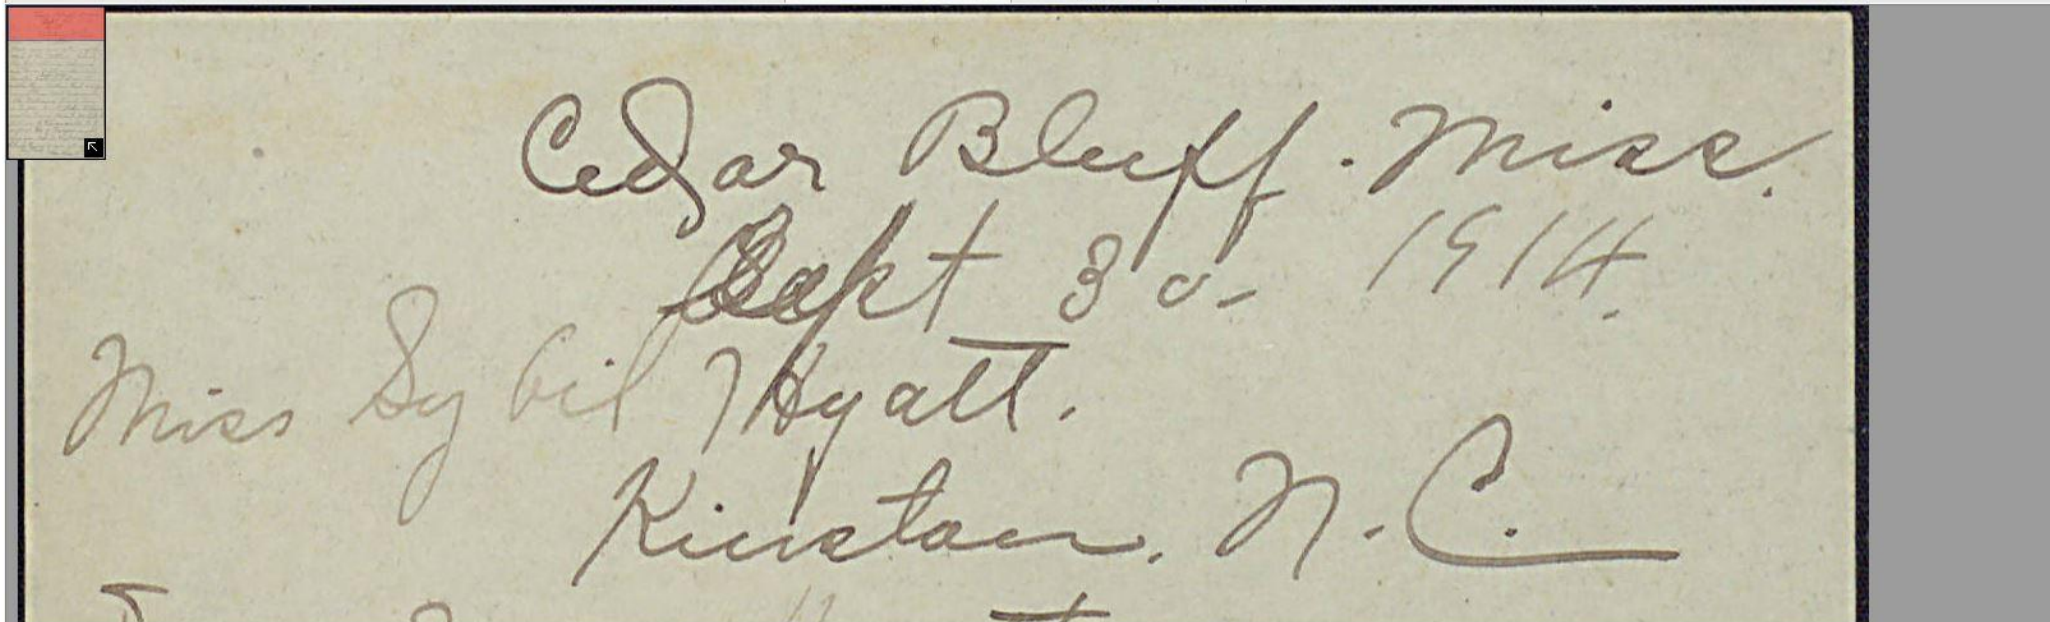 Cedar Bluff. Miss.
Sept 30- 1914.
Miss Sybil Hyatt.
Kinston. N. C.